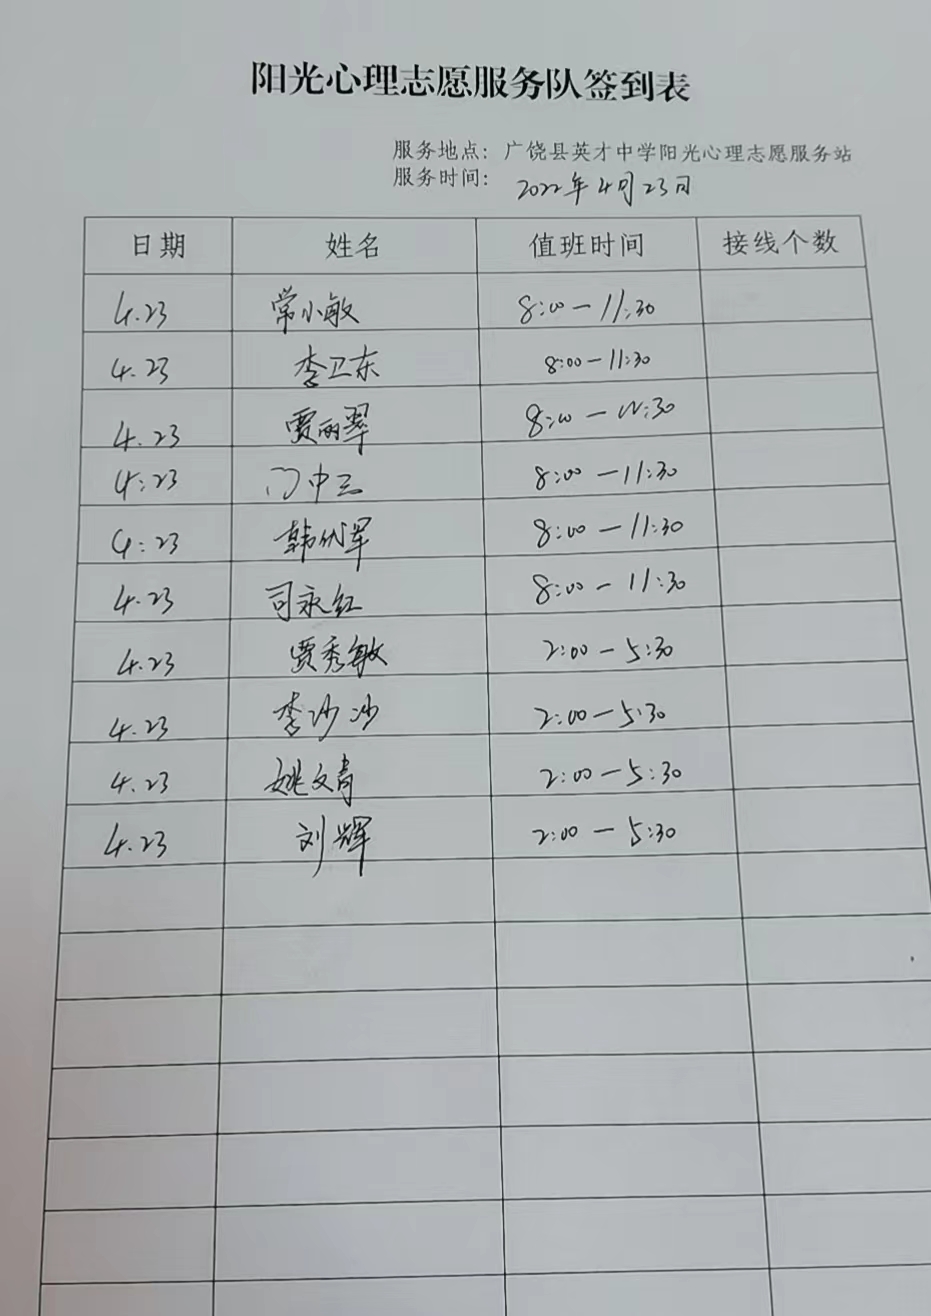 阳光心理志愿服务队签到表
服务地点：广饶县英才中学阳光心理志愿服务站
服务时间：2022年4月23日
日期 姓名 值班时间 接线个数
4.23 常小敏 8:00-11:30
4.23 李卫东 8:00-11:30
4.23 贾丽翠 8:00-11:30
4:23 门中三 8:00-11:30
4:23 韩代军 8:00-11:30
4.23 司永红 8:00-11:30
4.23 贾秀敏 2:00-5:30
4.23 李沙沙 2:00-5:30
4.23 姚文青 2:00-5:30
4.23 刘辉 2:00-5:30